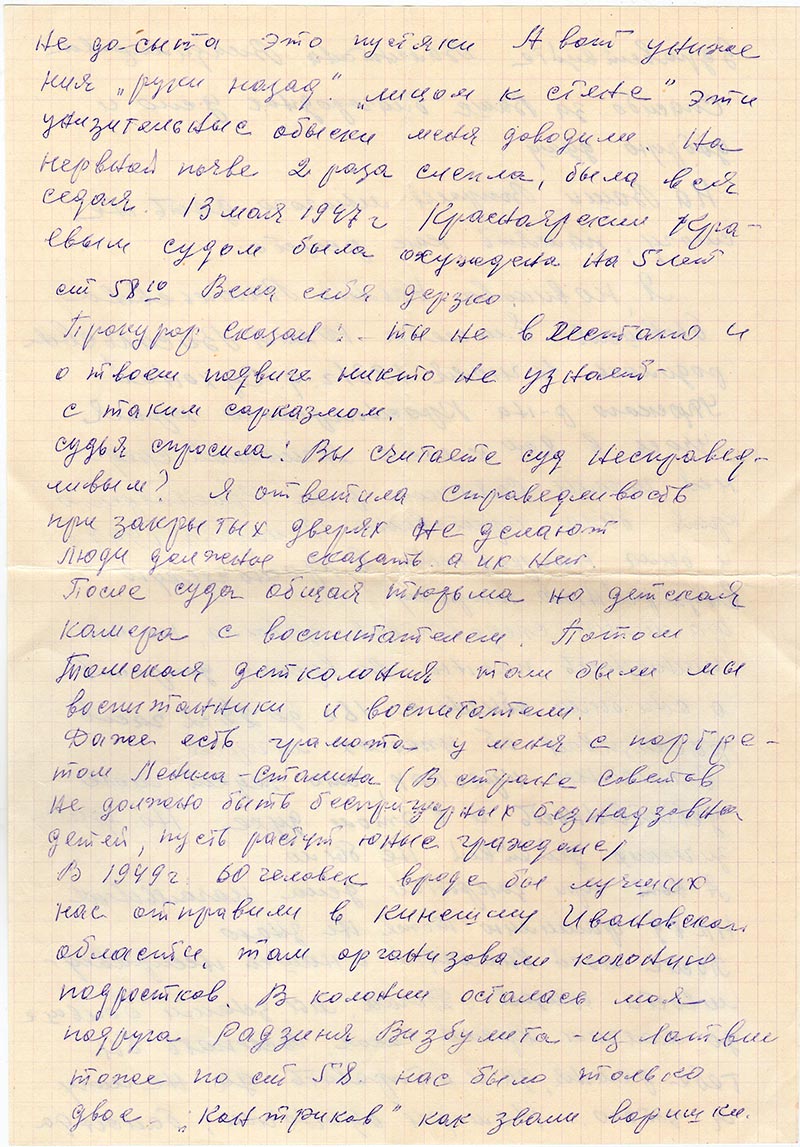 не до-сыта это пустяки А вот униже
ния „руки назад" „лицом к стене" эти
унизительные обыски меня доводили. На
нервной почве 2 раза слепла, была вся
седая. 13 мая 1947 г Красноярским Кра-
евым судом была осуждена на 5 лет
ст 58 10 Вела себя дерзко.
Прокурор сказал: - ты не в Гестапо и
о твоем подвиге никто не узнает-
с таким сарказмом.
судья спросила: Вы считаете суд несправед-
ливым? Я ответила справедливость
при закрытых дверях не делают
люди должны сказать а их нет.
После суда общая тюрьма но детская
камера с воспитателем. Потом
Томская детколония там были мы
воспитанники и воспитатели.
Даже есть грамота у меня с портре-
том Ленина-Сталина (В стране советов
не должно быть беспризорных безнадзорна
детей, пусть растут юные граждане)
В 1949 г. 60 человек вроде бы лучших
нас отправили в Кинешму Ивановской
области, там организовали колонию
подростков. В колонии осталась моя
подруга Радзиня Визбулита - из Латвии
тоже по ст 58. нас было только
двое „контриков" как звали воришки.